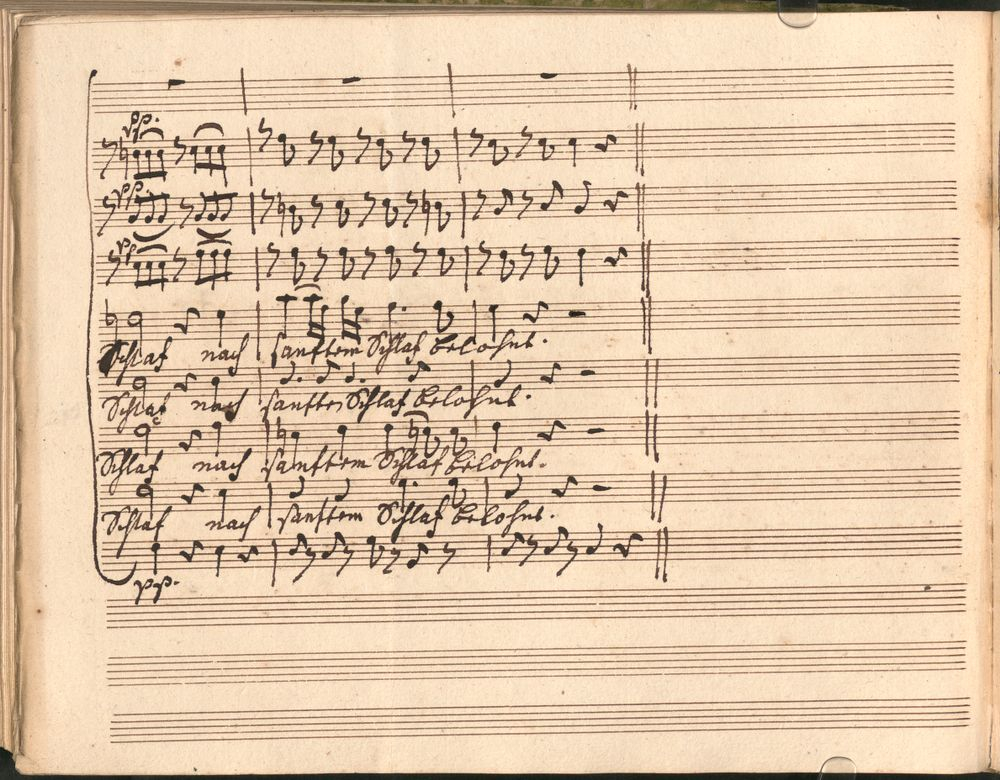 pp.
pp.
pp
Schlaf nach sanftem Schlaf belohnt.
Schlaf nach sanftem Schlaf belohnt.
Schlaf nach sanftem Schlaf belohnt.
Schlaf nach sanftem Schlaf belohnt.
pp.